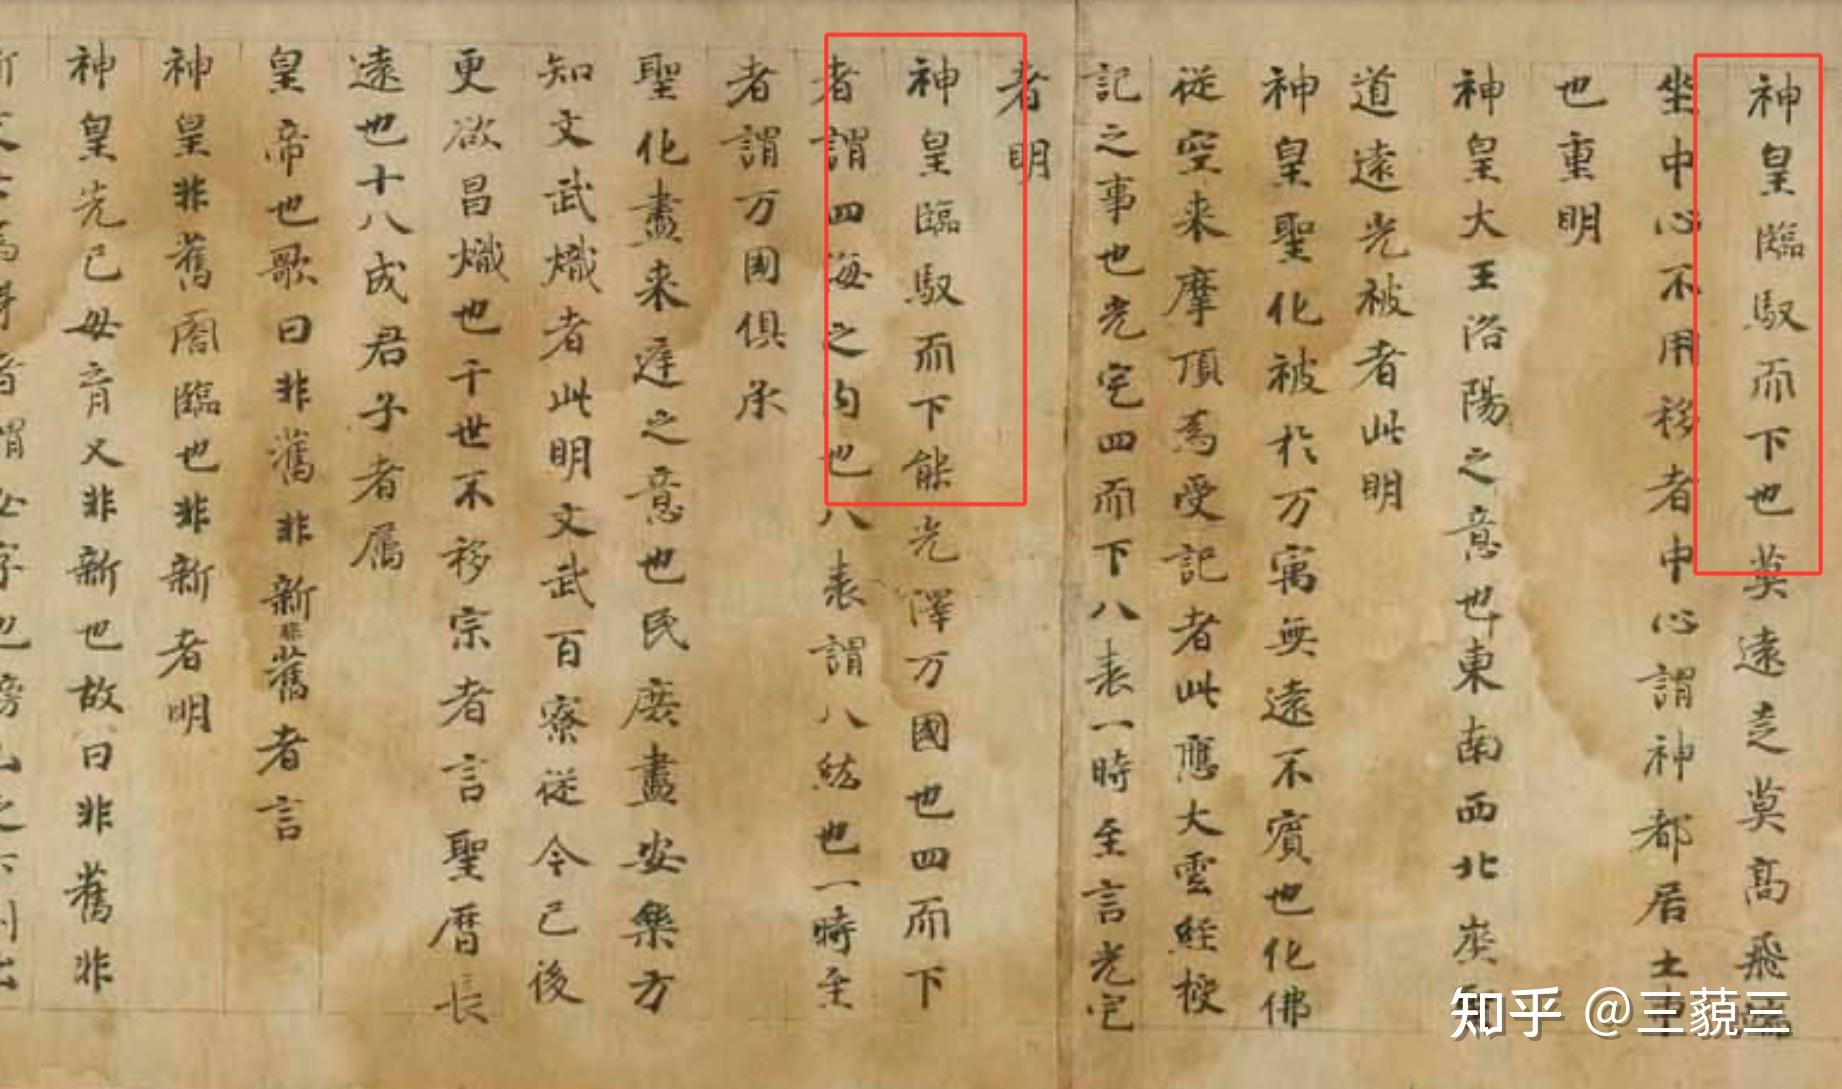 神皇臨馭而下也莫遠走莫高飛
坐中心不用移者中心謂神都居土中
也重明
神皇大王洛陽之意也東南西北炎
道遠光被者此明
神皇聖化被於万寓無遠不賓也化佛
從空来摩頂為受記者此應大雲經授
記之事也光宅四而下八表一時至言光宅
者明
神皇臨馭而下能光澤万國也四而下
者謂四海之内也八表謂八紘也一時至
者謂万國俱承
聖化盡来遅之意也民庶盡安樂方
知文武熾者此明文武百寮從今已後
更欲昌熾也千世不移宗者言聖曆長
遠也十八成君子者屬
皇帝也歌曰非舊非新非舊者言
神皇非舊閤臨也非新者明
神皇先已母育又非新也故曰非舊非
知乎 @三藐三